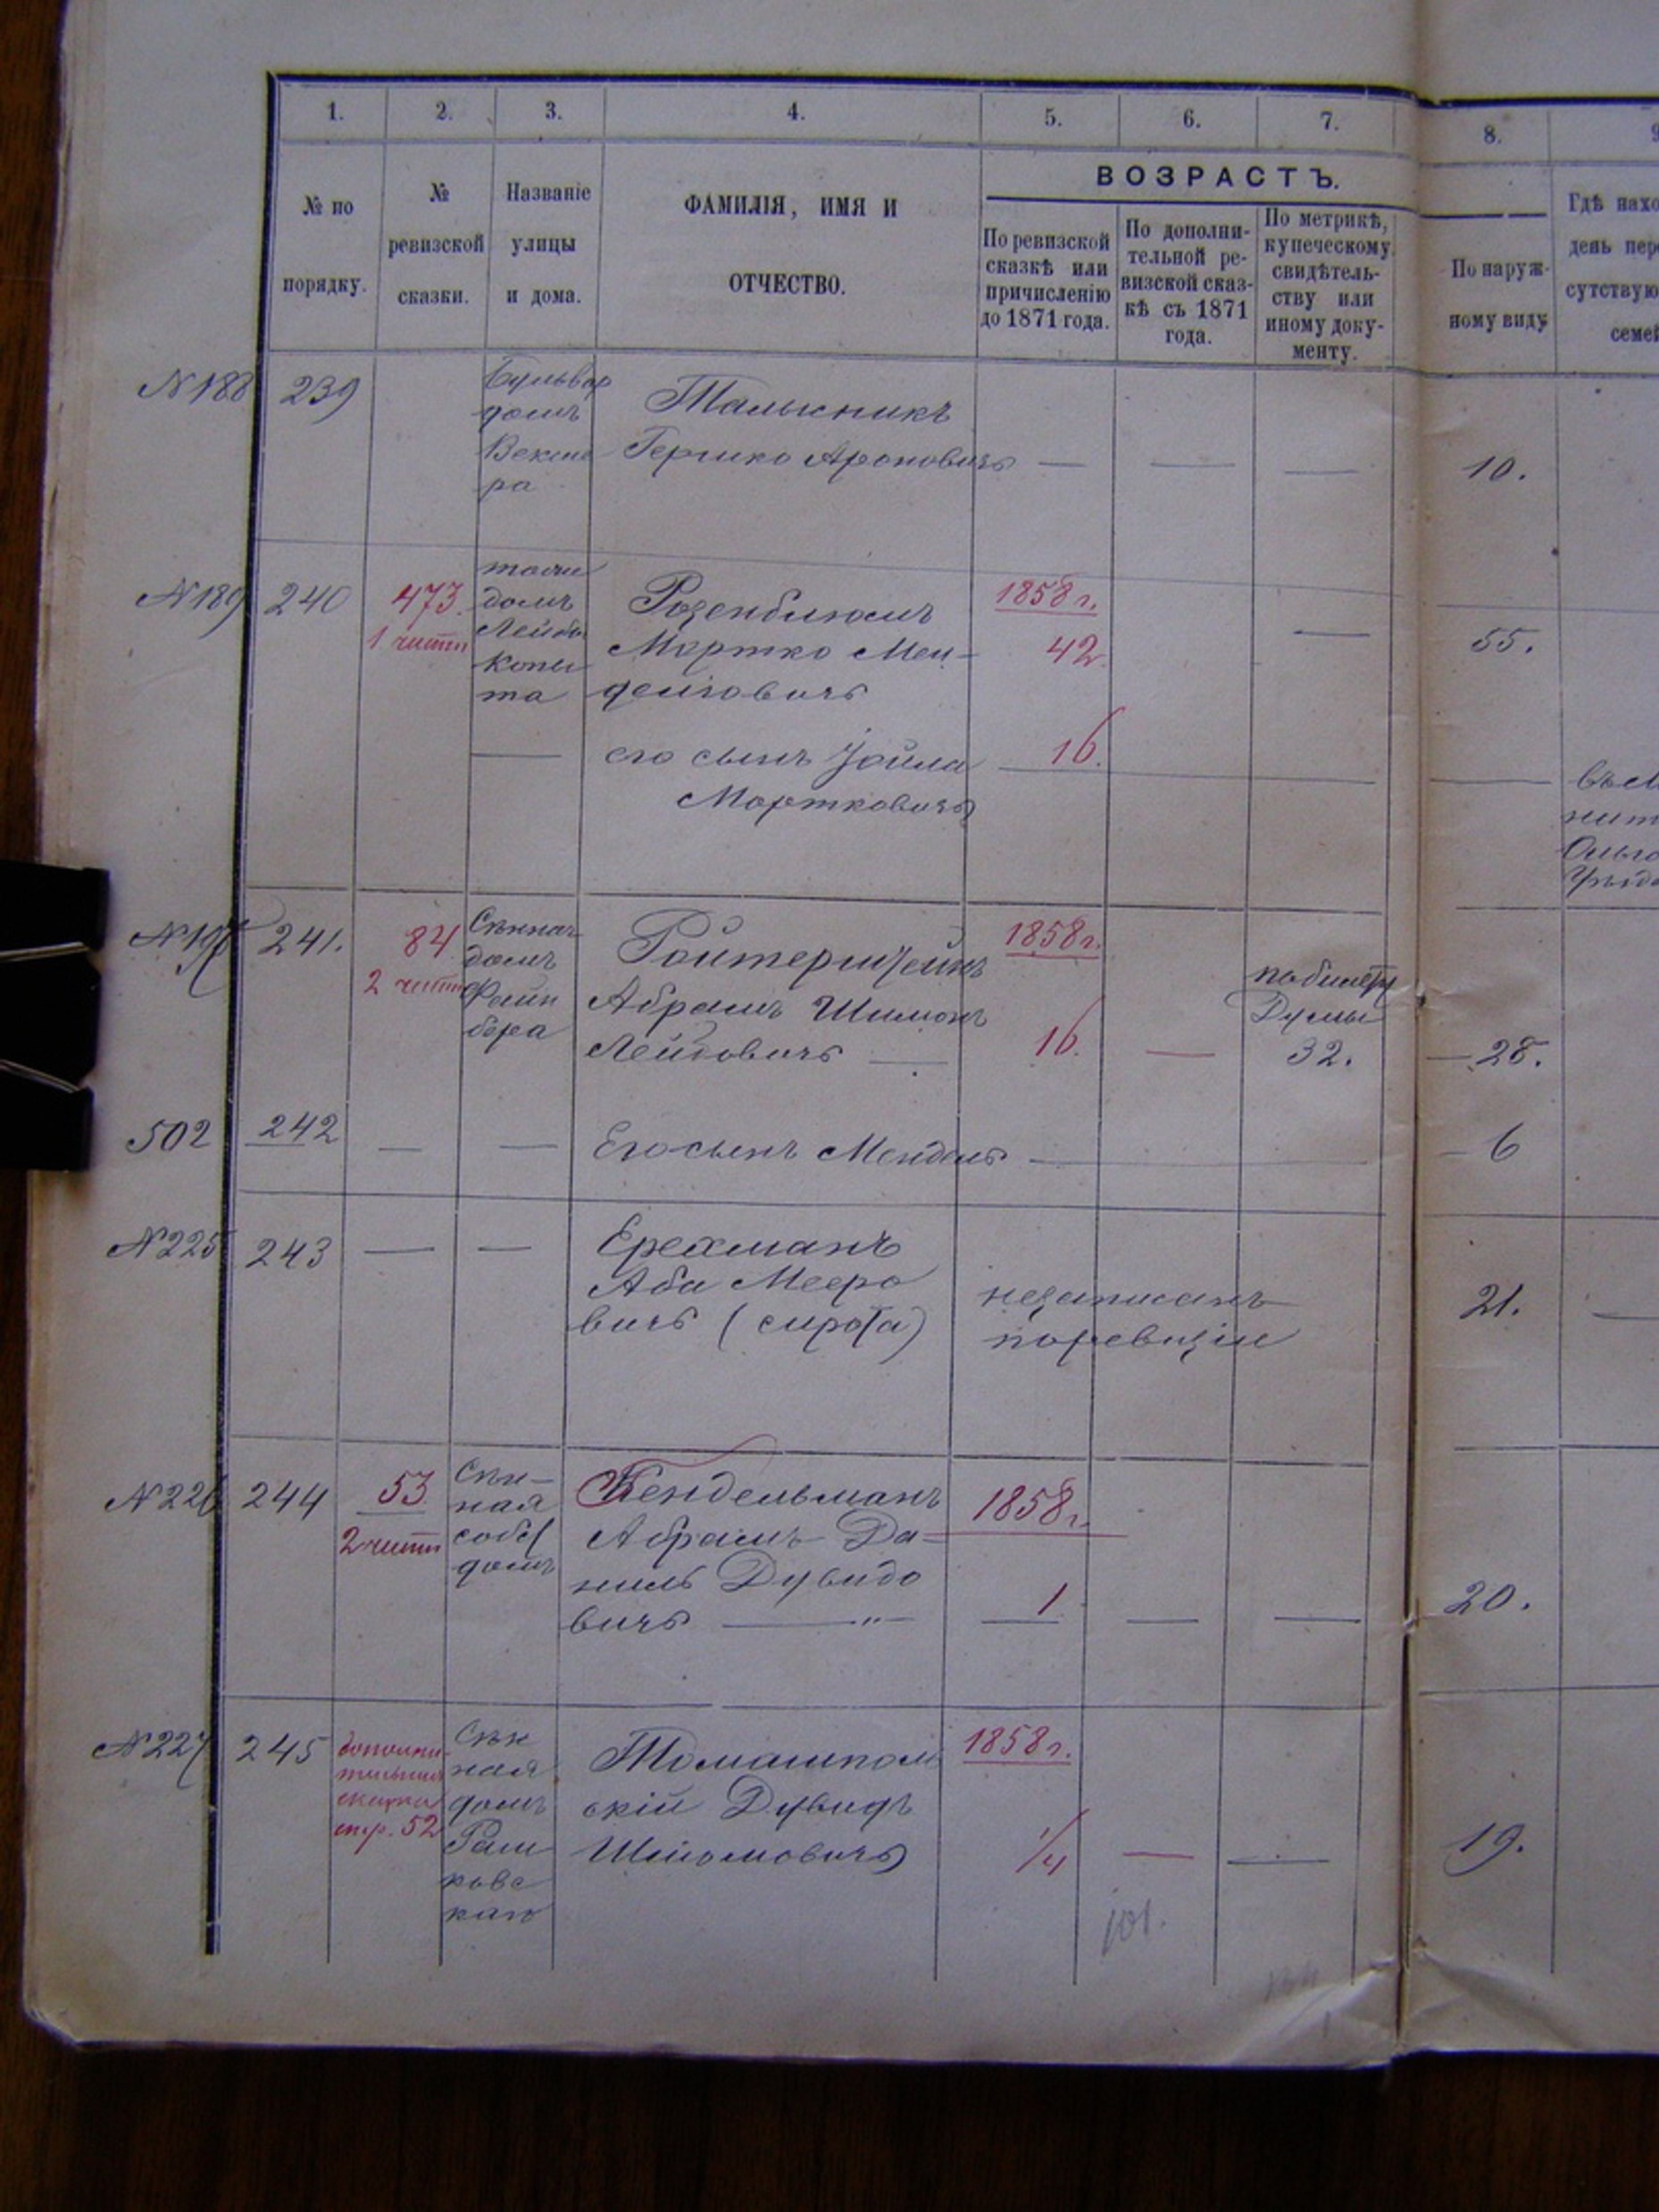 1. 2. 3. 4. 5. 6. 7. 8.
№ по порядку.
№ ревизской сказки.
Названіе улицы и дома.
ФАМИЛІЯ, ИМЯ И ОТЧЕСТВО.
ВОЗРАСТЪ.
По ревизской сказкѣ или причисленію до 1871 года.
По дополнительной ревизской сказкѣ съ 1871 года.
По метрикѣ, купеческому свидѣтельству или иному документу.
По наружному виду.
Гдѣ
день
семе
N188 239
Бульвар
домъ
Вексле
ра
Талисникъ
Гершко Ароновичъ — — — 10.
N189 240
473.
1 части
домъ
Лейбы
Копы
та
Розенблюмъ
Мортко Мен-
делiовичъ
1858 г.
42. — 55.
— его сынъ Іойла 16.
Мортковичъ
241.
84
2 части
Сѣнная
домъ
Файн
бера
Ройтерштейнъ
Абрамъ Шимонъ
Лейбовичъ —
1858 г.
16. —
по билету
Думы
32. — 28.
502 242 — — Его сынъ Мендель — 6
N225 243 — —
Ерехманъ
Аба Мееро
вичъ (сирота)
незаписанъ
поревизіи
21.
N226 244
53.
2 части
Сѣн-
ная
собст
домъ
Кендельманъ
Абрамъ Да-
ниль Дувидо
вичъ — " —
1858 г.
1 — — 20.
N227 245
дополни-
тельная
сказка
стр. 52
Сѣн
ная
домъ
Раш
ковс
каго
Томашполь
скій Дувидъ
Шліомовичъ
1858 г.
1/4 — — 19.
101.